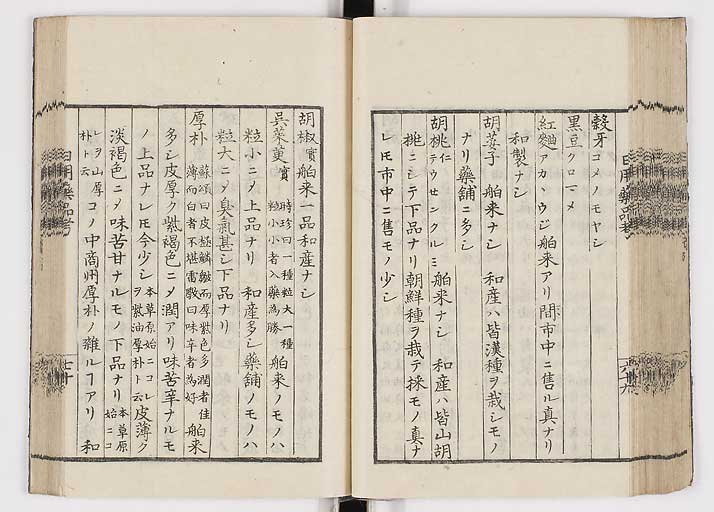 穀牙 コメノモヤシ
黒豆 クロマメ
紅麹 アカヽウジ 舶来アリ間市中ニ售ル真ナリ
和製ナシ
胡荽子 舶来ナシ 和産ハ皆漢種ヲ栽シモノ
ナリ藥舗ニ多シ
胡桃仁 テウセンクルミ 舶来ナシ 和産ハ皆山胡
桃ニシテ下品ナリ朝鮮種ヲ栽テ採モノ真ナ
レ𪜈市中ニ售モノ少シ
胡椒實 舶来一品和産ナシ
呉茱萸實 時珍曰一種粒大一種
粒小小者入藥為勝 舶来ノモノハ
粒小ニメ上品ナリ 和産多シ藥舗ノモノハ
粒大ニメ臭氣甚シ下品ナリ
厚朴 蘇頌曰皮極鱗皺而厚紫色多潤者佳
薄而白者不堪雷斅曰味辛者為好 舶来
多シ皮厚ク紫褐色ニメ潤アリ味苦辛ナルモ
ノ上品ナレ𪜈今少シ 本草原始ニコレ
ヲ紫油厚朴ト云 皮薄ク
淡褐色ニメ味苦甘ナルモノ下品ナリ 本草原
始ニコ
レヲ山厚
朴ト云 コノ中商州厚朴ノ雜ルヿアリ 和
日用藥品考
六十九
日用藥品考
七十